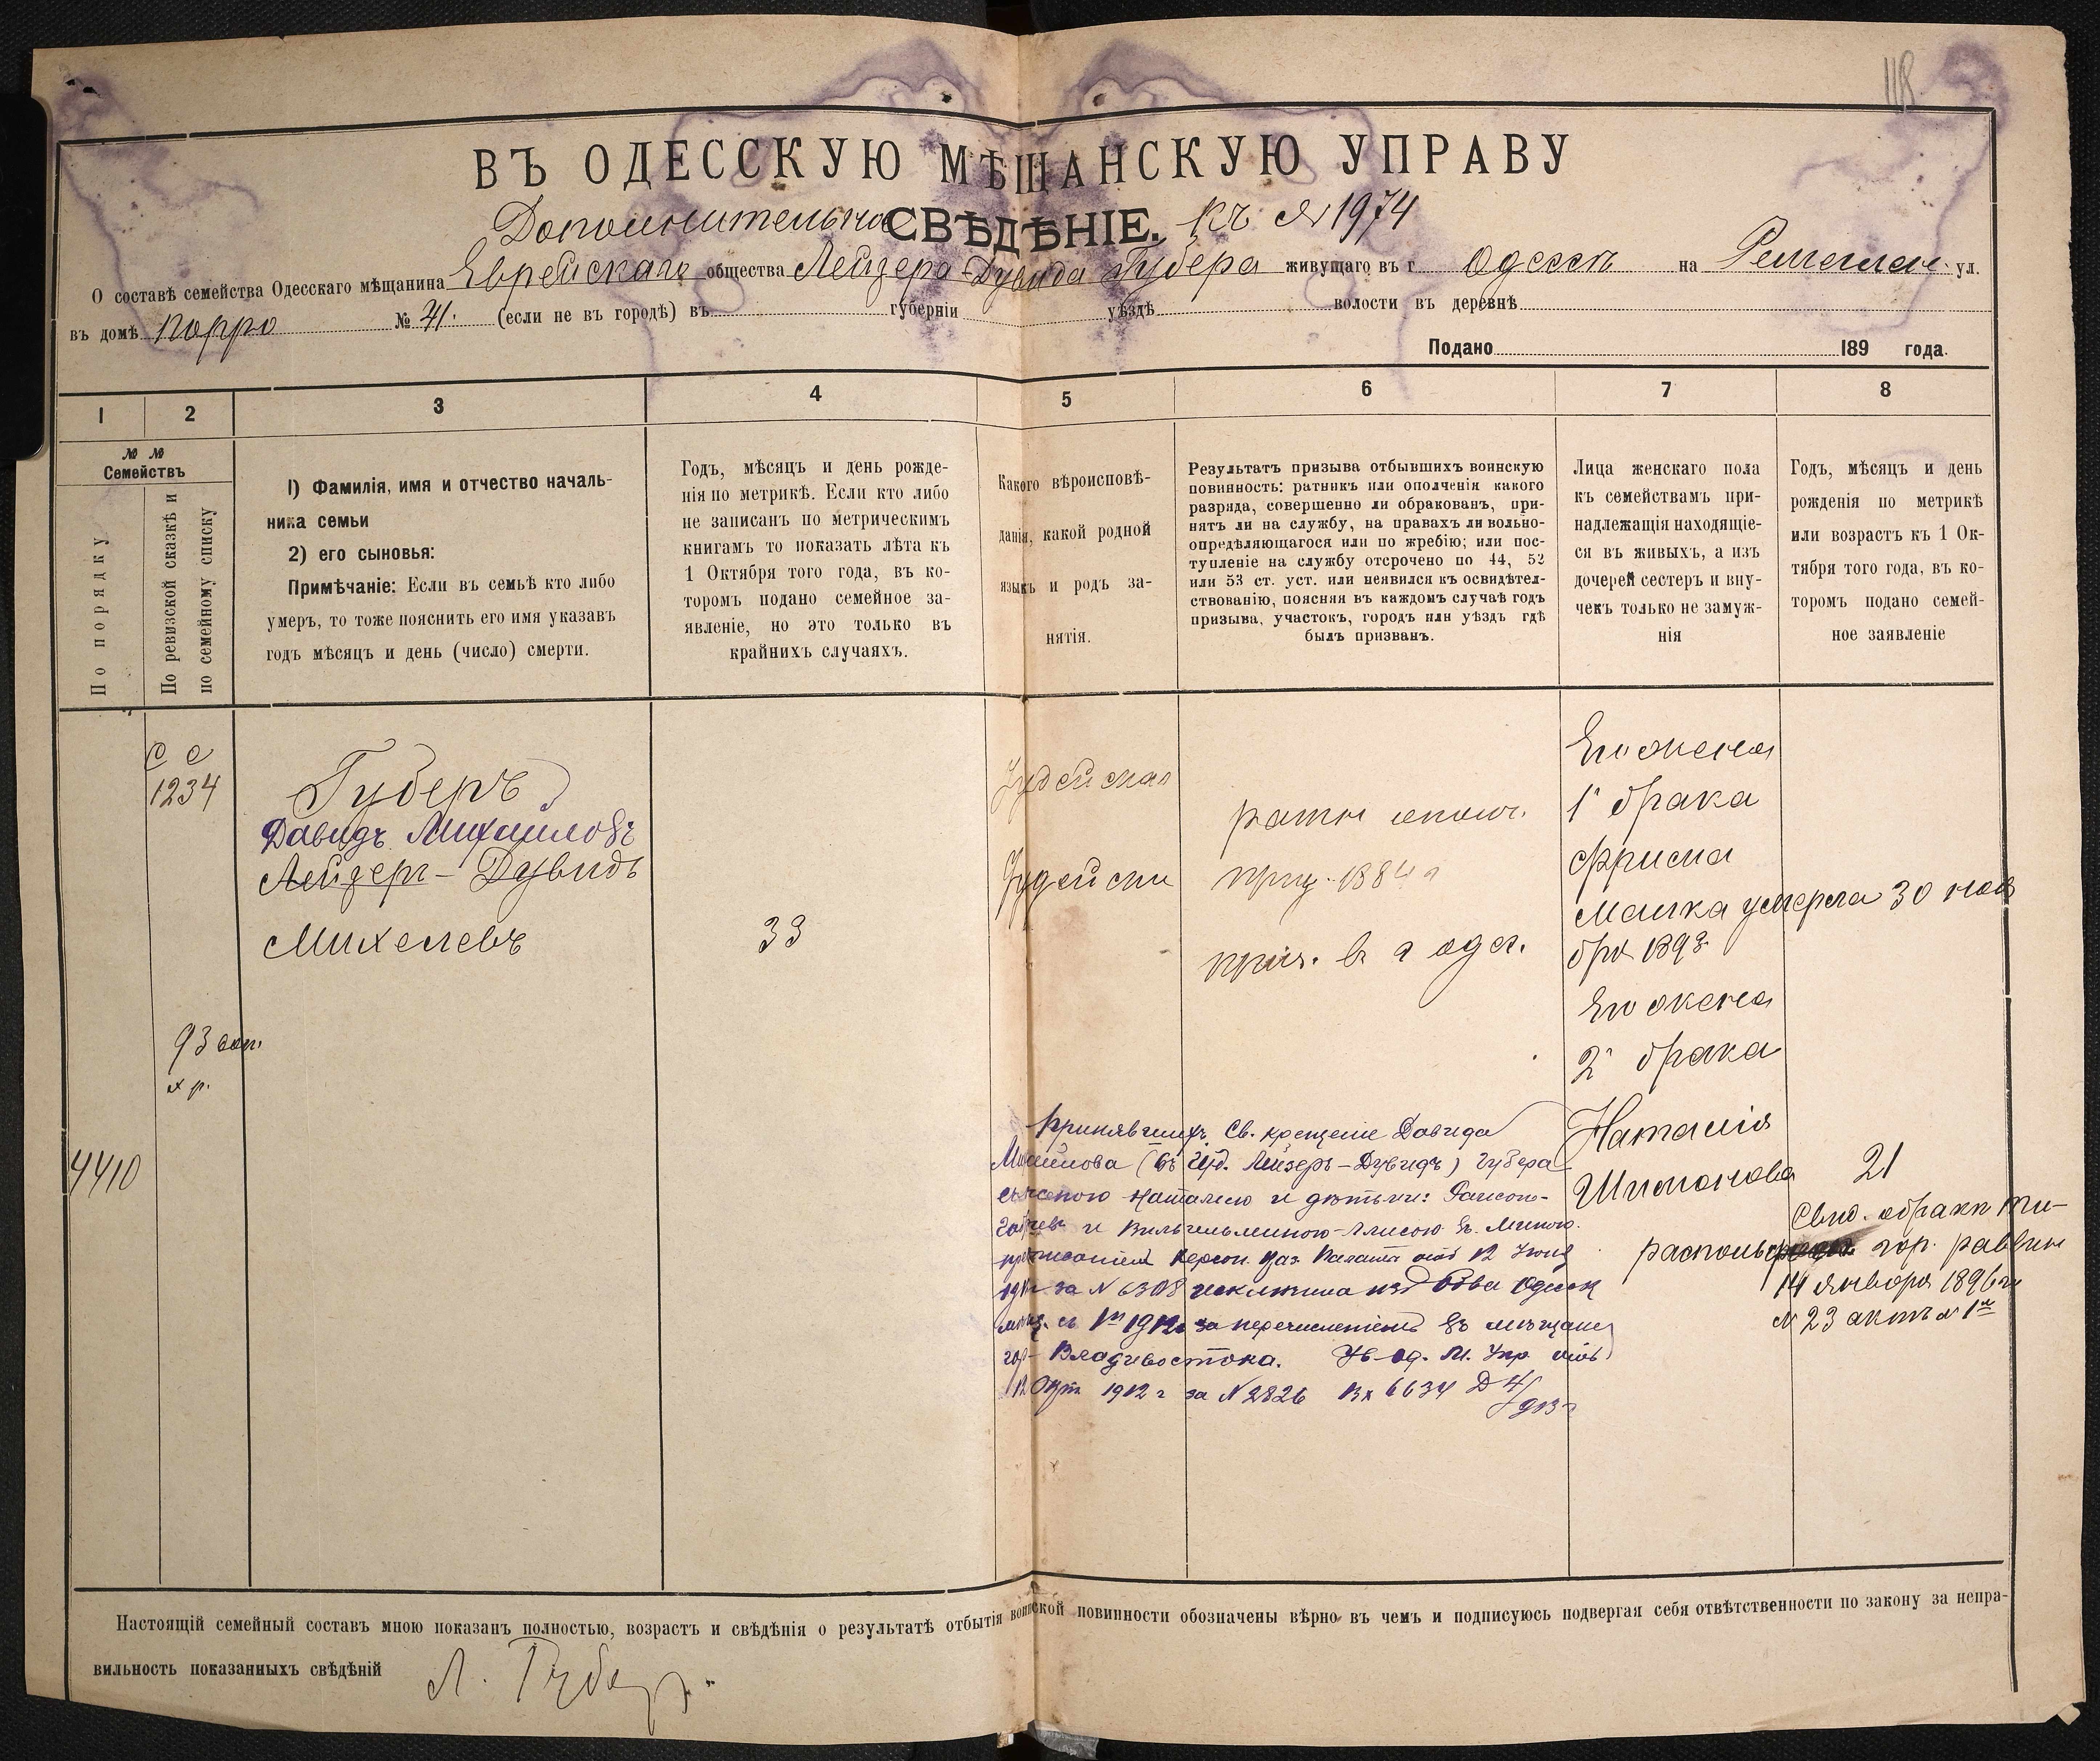 118
ВЪ ОДЕССКУЮ МѢЩАНСКУЮ УПРАВУ
Дополнительное СВѢДѢНІЕ. къ № 1974
О составѣ семейства Одесскаго мѣщанина Еврейскаго общества Лейзера-Дувида Губера живущаго въ г. Одессѣ на Ремеслен. ул.
въ домѣ Порро № 41. (если не въ городѣ) въ губерніи уѣздѣ волости въ деревнѣ
Подано 189 года.
1 2 3 4 5 6 7 8
№ №
Семействъ
По порядку
По ревизской сказкѣ и
по семейному списку
1) Фамилія, имя и отчество началь-
ника семьи
2) его сыновья:
Примѣчаніе: Если въ семьѣ кто либо
умеръ, то тоже пояснить его имя указавъ
годъ мѣсяцъ и день (число) смерти.
Годъ, мѣсяцъ и день рожде-
нія по метрикѣ. Если кто либо
не записанъ по метрическимъ
книгамъ то показать лѣта къ
1 Октября того года, въ ко-
торомъ подано семейное за-
явленіе, но это только въ
крайнихъ случаяхъ.
Какого вѣроисповѣ-
данія, какой родной
языкъ и родъ за-
нятія.
Результатъ призыва отбывшихъ воинскую
повинность: ратникъ или ополченія какого
разряда, совершенно ли обракованъ, при-
нятъ ли на службу, на правахъ ли вольно-
опредѣляющагося или по жребію; или пос-
тупленіе на службу отсрочено по 44, 52
или 53 ст. уст. или неявился къ освидѣтел-
ствованію, поясняя въ каждомъ случаѣ годъ
призыва, участокъ, городъ или уѣздъ гдѣ
былъ призванъ.
Лица женскаго пола
къ семействамъ при-
надлежащія находящіе-
ся въ живыхъ, а изъ
дочерей сестеръ и вну-
чекъ только не замуж-
нія
Годъ, мѣсяцъ и день
рожденія по метрикѣ
или возрастъ къ 1 Ок-
тября того года, въ ко-
торомъ подано семей-
ное заявленіе
с с
1234
93
4410
Губеръ
Давидъ Михайловъ
Лейзеръ-Дувидъ
Михелевъ
33
Іудейская
Іудейски
ратн ополч.
приз. 1884 г
приз. в г одес.
Его жена
1 брака
Фрима
Малка умерла 30 нояб
бря 1893
Его жена
2 брака
Наталія
Шимонова
21
Свид. о бракѣ ти-
распольск гор. раввин
14 января 1896 г
№ 23 актъ № 1
Принявшихъ Св. крещеніе Давида
Михайлова (въ Іуд. Лейзеръ-Дувидъ) Губера
съ женою Наталіею и дѣтьми:
и Вильгельминою-
Херсон. Каз. Палаты отъ 12 Іюня
за № 6308 исключена изъ Одесск
мѣщ. съ 1912 за перечисленіемъ въ мѣщане
гор. Владивостока. Ув. Од. М. Упр отъ
12 Окт 1912 г за № 2826 Вх 6634
Настоящій семейный составъ мною показанъ полностью, возрастъ и свѣдѣнія о результатѣ отбытія воинской повинности обозначены вѣрно въ чемъ и подписуюсь подвергая себя отвѣтственности по закону за непра-
вильность показанныхъ свѣдѣній
Л. Губер